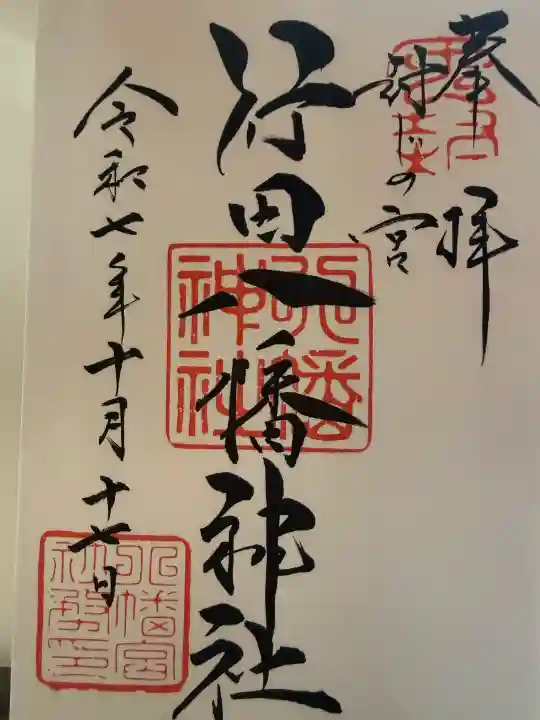 奉拝
封じの宮
行田八幡神社
令和七年十月十七日
八幡神社
八幡宮社務印